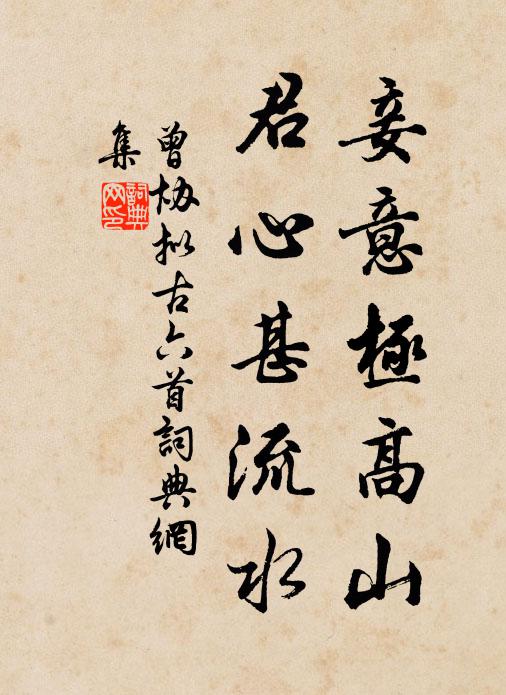 妾意極高山
君心甚流水
曾協拟古六首詞典網
集
詞典網印